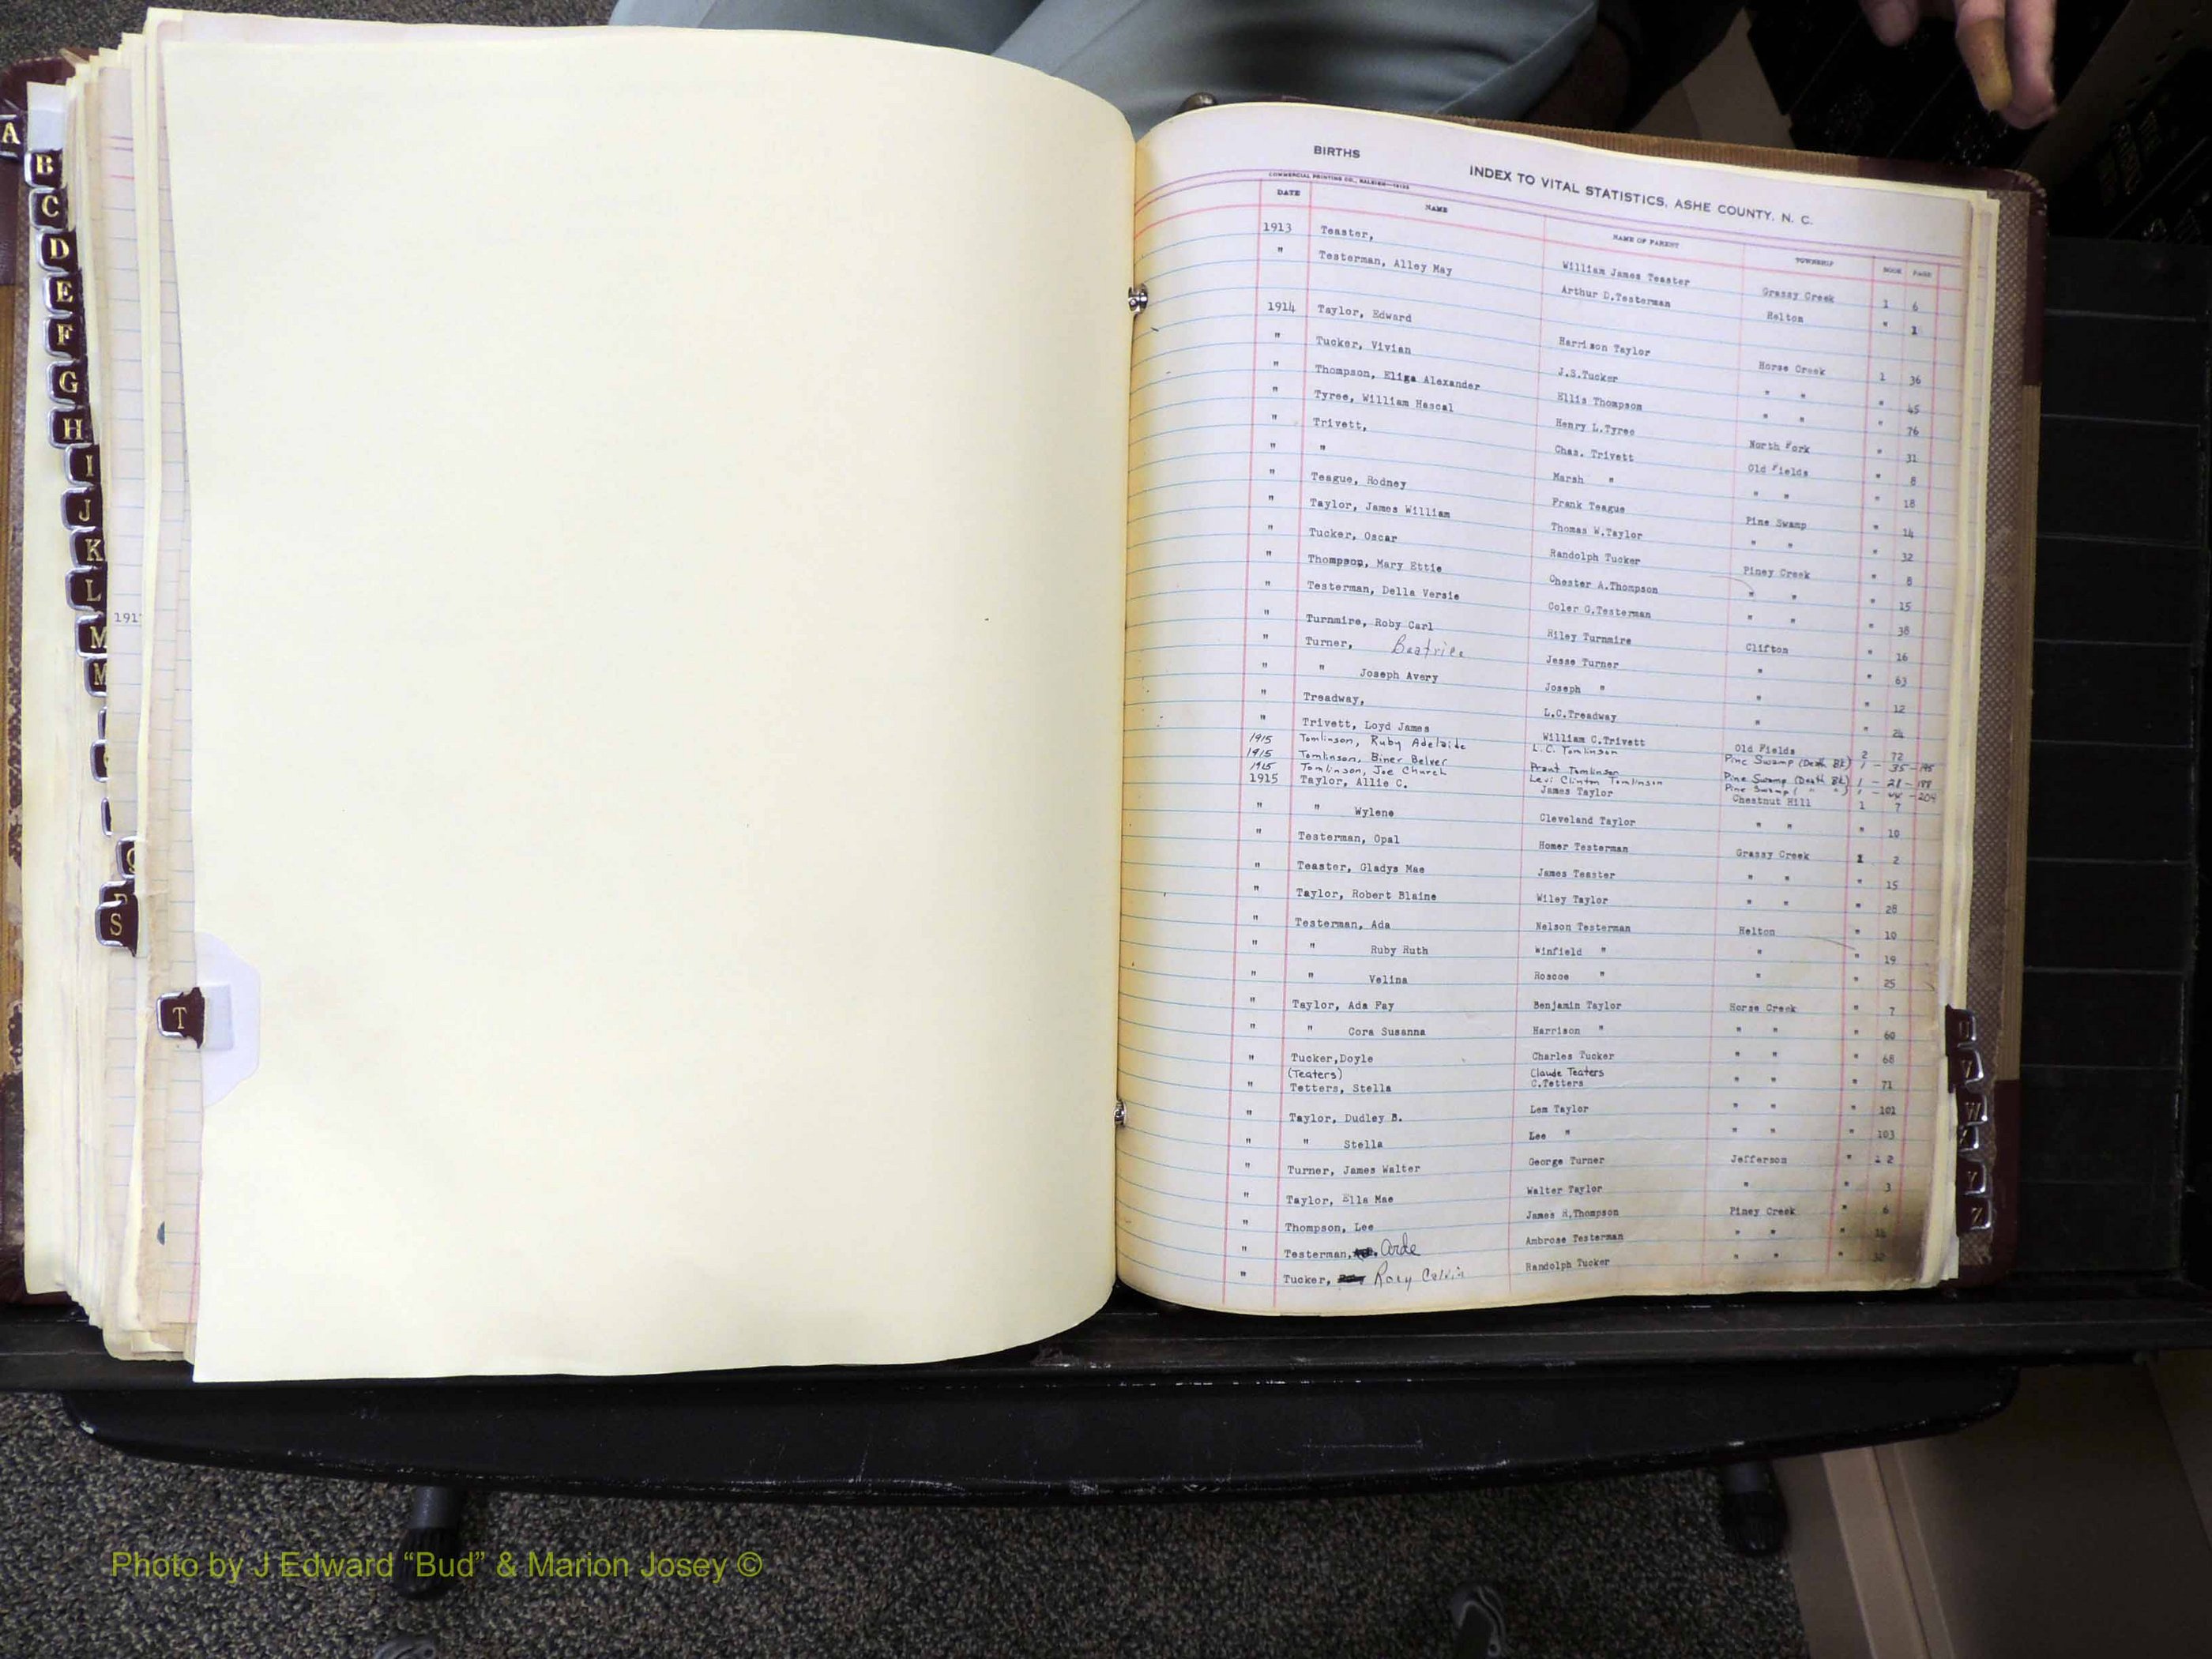 A
B
C
D
E
F
G
H
I
J
K
L
M
M
Q
S
T
191
BIRTHS
INDEX TO VITAL STATISTICS, ASHE COUNTY, N. C.
COMMERCIAL PRINTING CO., RALEIGH
DATE NAME NAME OF PARENT TOWNSHIP BOOK PAGE
1913 Teaster, William James Teaster Grassy Creek 1 6
" Testerman, Alley May Arthur D.Testerman Helton " 1
1914 Taylor, Edward Harrison Taylor Horse Creek 1 36
" Tucker, Vivian J.S.Tucker " " " 45
" Thompson, Eliga Alexander Ellis Thompson " " " 76
" Tyree, William Hascal Henry L.Tyree North Fork " 31
" Trivett, Chas. Trivett Old Fields " 8
" " Marsh " " " " 18
" Teague, Rodney Frank Teague Pine Swamp " 14
" Taylor, James William Thomas W.Taylor " " " 32
" Tucker, Oscar Randolph Tucker Piney Creek " 8
" Thompson, Mary Ettie Chester A.Thompson " " " 15
" Testerman, Della Versie Coler G.Testerman " " " 38
" Turnmire, Roby Carl Riley Turnmire Clifton " 16
" Turner, Beatrice Jesse Turner " " 63
" " Joseph Avery Joseph " " " 12
" Treadway, L.C.Treadway " " 24
" Trivett, Loyd James William C.Trivett Old Fields 2 72
1915 Tomlinson, Ruby Adelaide L.C. Tomlinson Pine Swamp (Death Bk) 1 - 35-195
1915 Tomlinson, Biner Belver Prant Tomlinson Pine Swamp (Death Bk) 1 - 21-188
1915 Tomlinson, Joe Church Levi Clinton Tomlinson Pine Swamp ( " " ) 1 - 44-204
1915 Taylor, Allie C. James Taylor Chestnut Hill 1 7
" " Wylene Cleveland Taylor " " " 10
" Testerman, Opal Homer Testerman Grassy Creek 1 2
" Teaster, Gladys Mae James Teaster " " " 15
" Taylor, Robert Blaine Wiley Taylor " " " 28
" Testerman, Ada Nelson Testerman Helton " 10
" " Ruby Ruth Winfield " " " 19
" " Velina Roscoe " " " 25
" Taylor, Ada Fay Benjamin Taylor Horse Creek " 7
" " Cora Susanna Harrison " " " " 60
" Tucker,Doyle Charles Tucker " " " 68
(Teaters) Claude Teaters
" Tetters, Stella C.Tetters " " " 71
" Taylor, Dudley B. Lem Taylor " " " 101
" " Stella Lee " " " " 103
" Turner, James Walter George Turner Jefferson " 2
" Taylor, Ella Mae Walter Taylor " " 3
" Thompson, Lee James H.Thompson Piney Creek " 6
" Testerman, Arde Ambrose Testerman " " "
" Tucker, Roxy Calvin Randolph Tucker " " "
U
V
W
Y
Z
Photo by J Edward “Bud” & Marion Josey ©